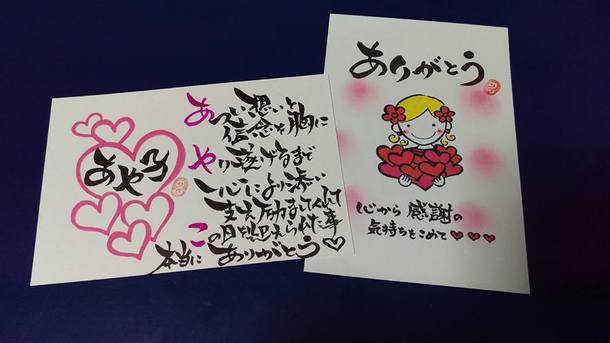 あや子
あつい想いと
信念を胸に
やり遂げるまで
心により添い
支え励ましてくれて
この日を迎えられた事
本当に ありがとう♡
ありがとう
心から 感謝の
気持ちをこめて♥♥♥